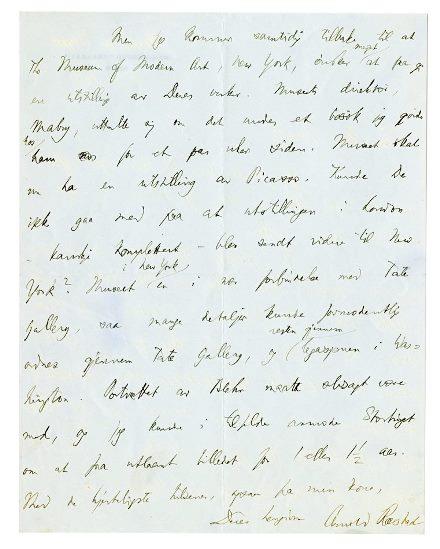 Men jeg kommer samtidig tilbake til at
The Museum of Modern Art, New York, ønsker meget at faa
en utstilling av Deres verker. Museets direktør,
Mabry, uttalte sig om det under et besøk jeg gjorde
hos ham for et par uker siden. Museet skal
nu ha en utstilling av Picasso. Kunde De
ikke gaa med paa at utstillingen i London
- kanskje komplettert - blev sendt videre til New
York? Museet i New York er i nær forbindelse med Tate
Gallery, saa mange detaljer kunde formodentlig
ordnes gjennem Tate Gallery, og resten gjennem Legasjonen i Was-
hington. Portrættet av Blehr maatte absolut være
med, og jeg kunde i tilfelde anmode Stortinget
om at faa utlaant billedet for 1 eller 1½ aar.
Med de hjerteligste hilsener, ogsaa fra min kone,
Deres hengivne Arnold Ræstad